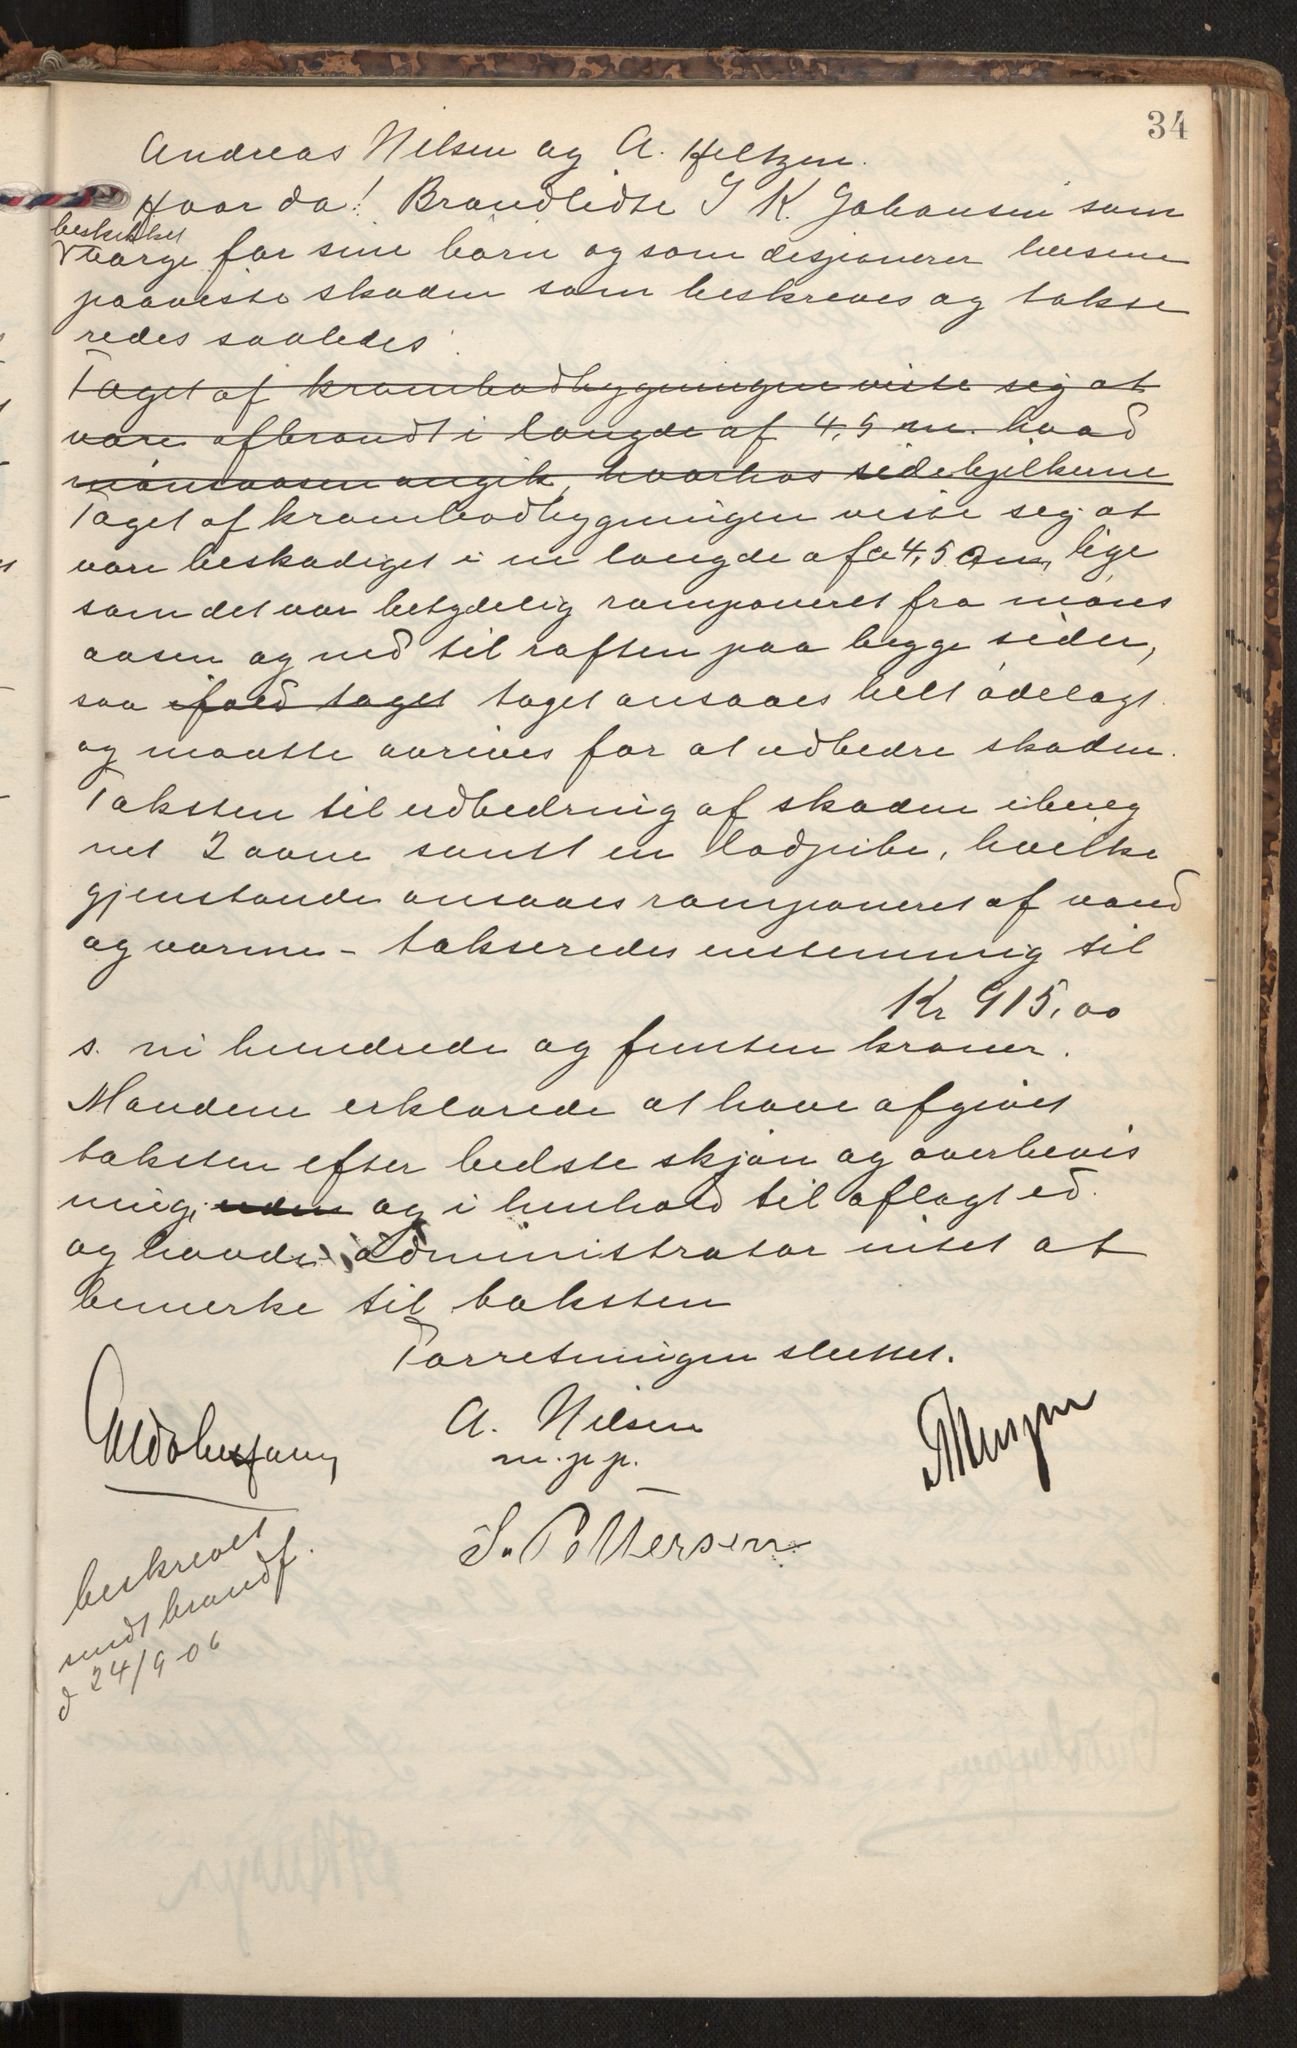 34
Andreas Nilsen og A. Heltzen.
Hvor da! Brandlidte J K. Johansen som
beskikket
værge for sine børn og som desponerer husene
paaviste skaden som beskreves og takse
redes saaledes:
Taget af krambodbygningen viste sig at
være afbrændt i længde af 4,5 m. hvad
mønsaasen angik, hvorhos sidebjelkerne
Taget af krambodbygningen viste sig at
være beskadiget i en længde af ca 4,5 m, lige
som det var betydelig ramponeret fra møns
aasen og ned til raften paa begge sider,
saa ifald taget taget ansaaes helt ødelagt
og maatte avrives for at udbedre skaden.
Taksten til udbedring af skaden ibereg
net 2 ovne samt en ladpibe, hvilke
gjenstande ansaaes ramponeret af vand
og varme - takseredes enstemmig til
Kr 915,00
s. ni hundrede og femten kroner.
Mændene erklærede at have afgivet
taksten efter bedste skjøn og overbevis
ning, uden og i henhold til aflagt ed.
og havde administrator intet at
bemerke til taksten
Forretningen sluttet.
A. Nilsen
m.p.p.
S. Pettersen
beskrevet
sendt brandf.
d 24/9-06